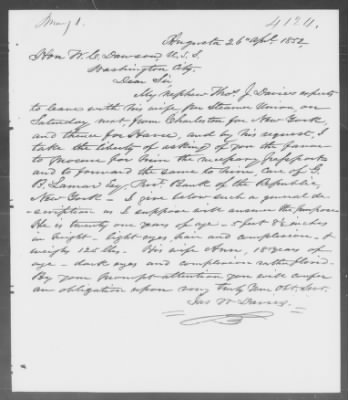 May 1.
4124.
Augusta 26 Apl. 1852
Hon W. C. Dawson, U.S.S.
Washington City.
Dear Sir,
My Nephew Thos. J. Davies expects
to leave with his wife per Steamer Union on
Saturday next from Charleston for New York,
and thence for Havre, and by his request, I
take the liberty of asking of you the favor
to procure for him the necessary passports
and to forward the same to him, care of G.
B. Lamar Esq Prest. Bank of the Republic,
New York - I give below such a general de-
scription as I suppose will answer the purpose
He is twenty one years of age - 5 feet 8½ inches
in height - light eyes, hair and complexion - &
weighs 125 lbs. His wife Ann, 18 years of
age - dark eyes and complexion rather florid.
By your prompt attention you will confer
an obligation upon very truly Your Obt. Serv.
Jno W Davies